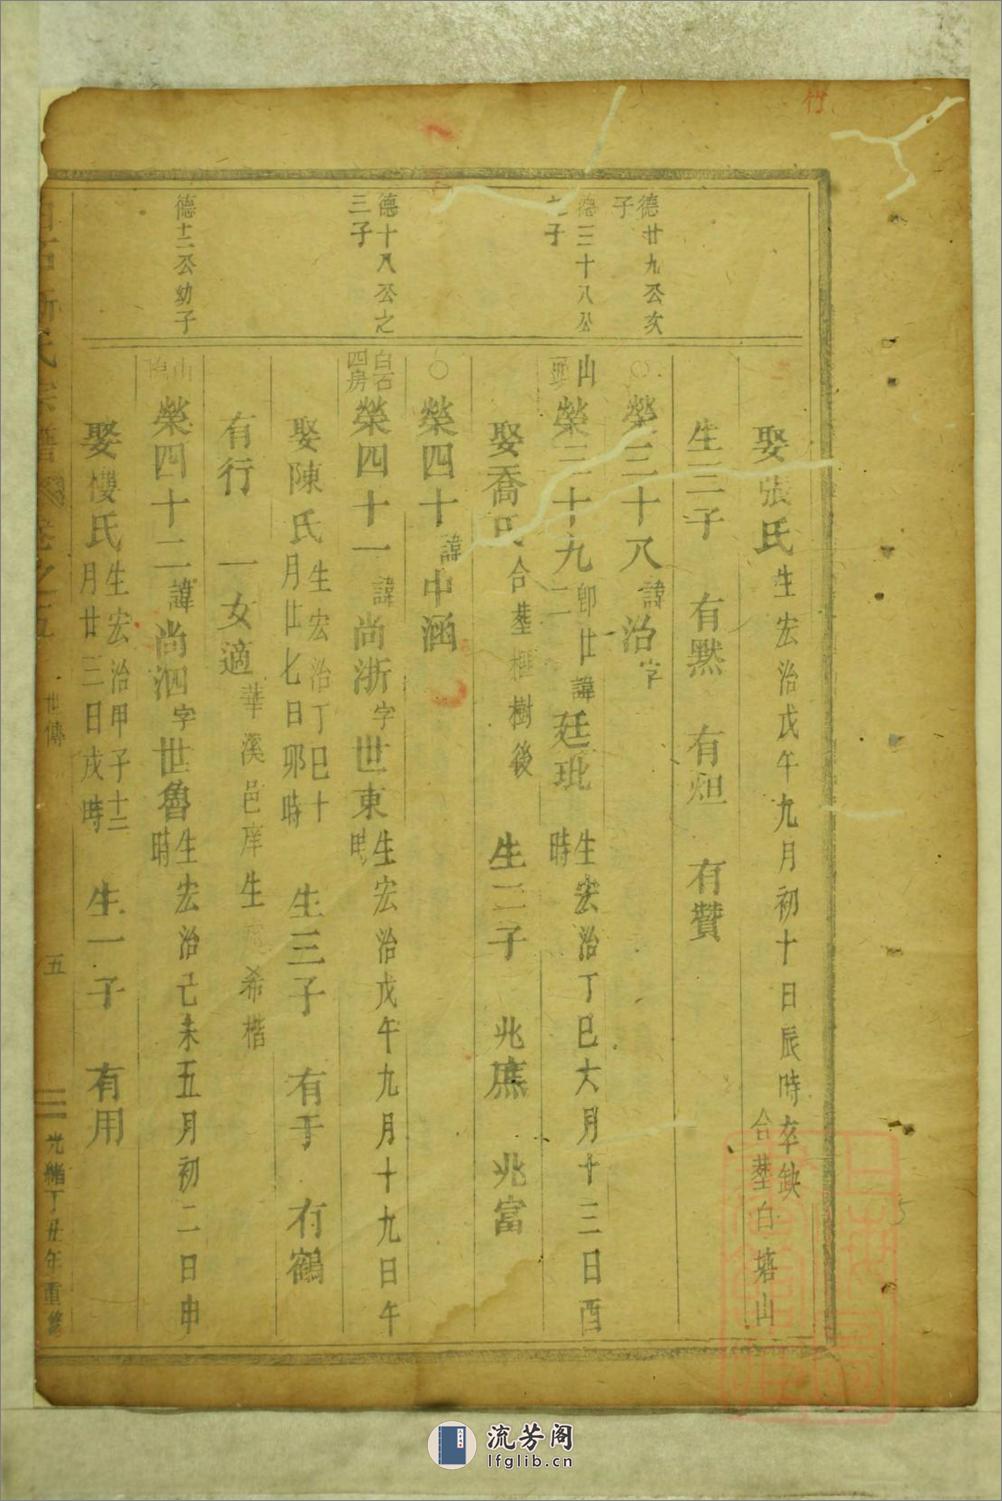 竹
德廿九公次子
德三十八公七子
德十八公之三子
德十二公幼子
娶張氏生宏治戊午九月初十日辰時卒缺合塟白塔山
生三子 有默 有炟 有贊
○榮三十八諱治字
山頭榮三十九諱廷玭生宏治丁巳六月十三日酉時
娶喬氏合塟樹後 生二子 兆廡 兆富
○榮四十諱中涵
白石四房榮四十一諱尚浙字世東生宏治戊午九月十九日午時
娶陳氏生宏治丁巳十月廿七日卯時 生三子 有于 有鶴
有行 一女適華溪邑庠生希楷
榮四十二諱尚泗字世魯生宏治己未五月初二日申時
娶樓氏生宏治甲子十二月廿三日戌時 生一子 有用
氏宗譜 卷之五 世傳 五 光緒丁丑年重修
流芳阁
lfglib.cn